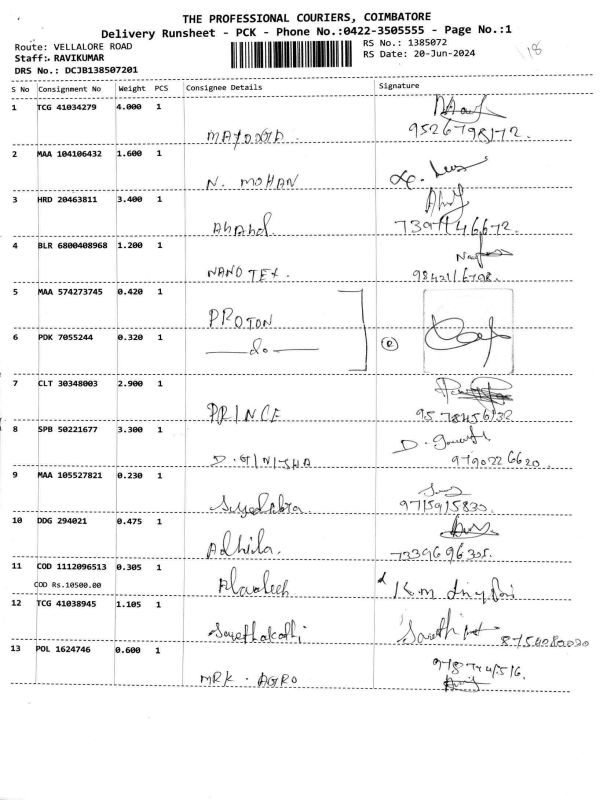 THE PROFESSIONAL COURIERS, COIMBATORE
Delivery Runsheet - PCK - Phone No.:0422-3505555 - Page No.:1
Route: VELLALORE ROAD RS No.: 1385072
Staff: RAVIKUMAR RS Date: 20-Jun-2024 18
DRS No.: DCJB138507201
S No Consignment No Weight PCS Consignee Details Signature
1 TCG 41034279 4.000 1
9526798172.
2 MAA 104106432 1.600 1
N. MOHAN
3 HRD 20463811 3.400 1
4 BLR 6800408968 1.200 1
NANO TEX.
5 MAA 574273745 0.420 1
PROTON
6 PDK 7055244 0.320 1
do
7 CLT 30348003 2.900 1
PRINCE 9578456132
8 SPB 50221677 3.300 1
D. GINISHA 9790226620.
9 MAA 105527821 0.230 1
9715915830.
10 DDG 294021 0.475 1
Adhila. 7339696305.
11 COD 1112096513 0.305 1
COD Rs.10500.00
12 TCG 41038945 1.105 1
13 POL 1624746 0.600 1
MRK. AGRO